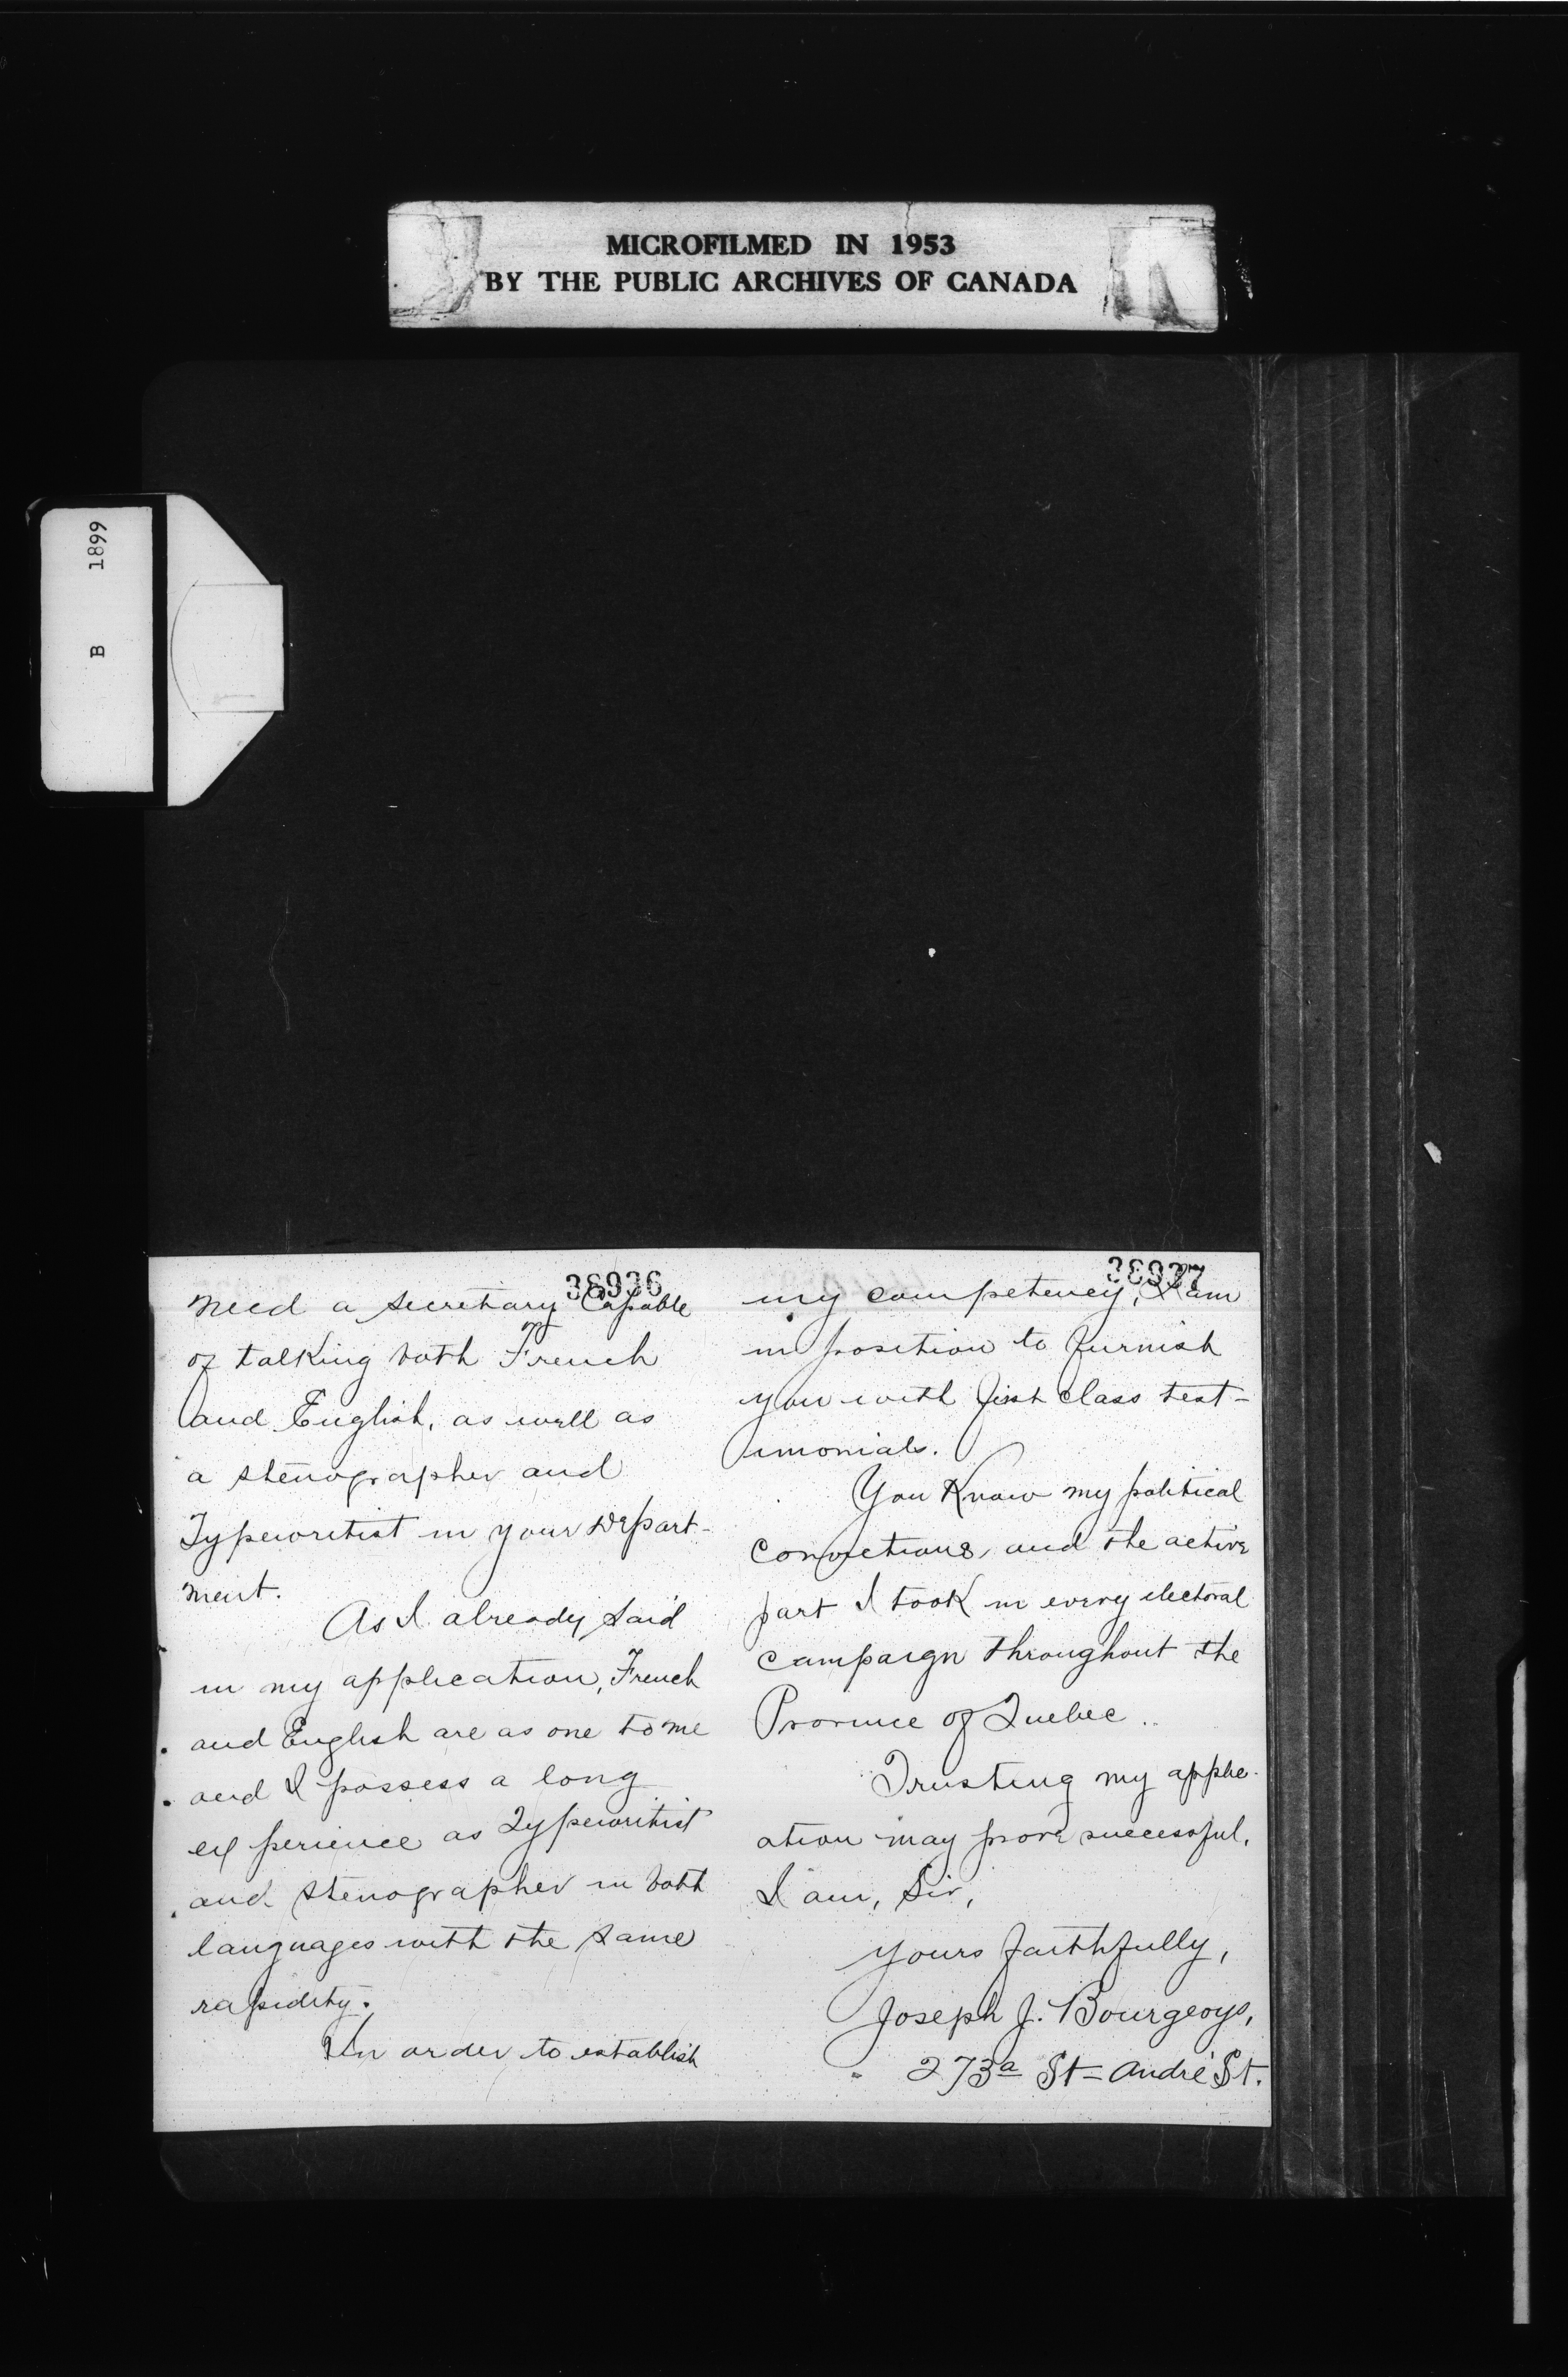 MICROFILMED IN 1953
BY THE PUBLIC ARCHIVES OF CANADA
B 1899
36936
need a secretary capable
of talking both French
and English, as well as
a stenographer and
Typewritist in your Depart-
ment.
As I already said
in my application, French
and English are as one to me
and I possess a long
experience as Typewritist
and stenographer in both
languages with the same
rapidity.
In order to establish
36937
my competency, I am
in position to furnish
you with first class test-
imonials.
You Know my political
convictions, and the active
part I took in every electoral
campaign throughout the
Province of Quebec..
Trusting my applic-
ation may prove successful,
I am, Sir,
Yours faithfully,
Joseph J. Bourgeoys,
273a St-André St.